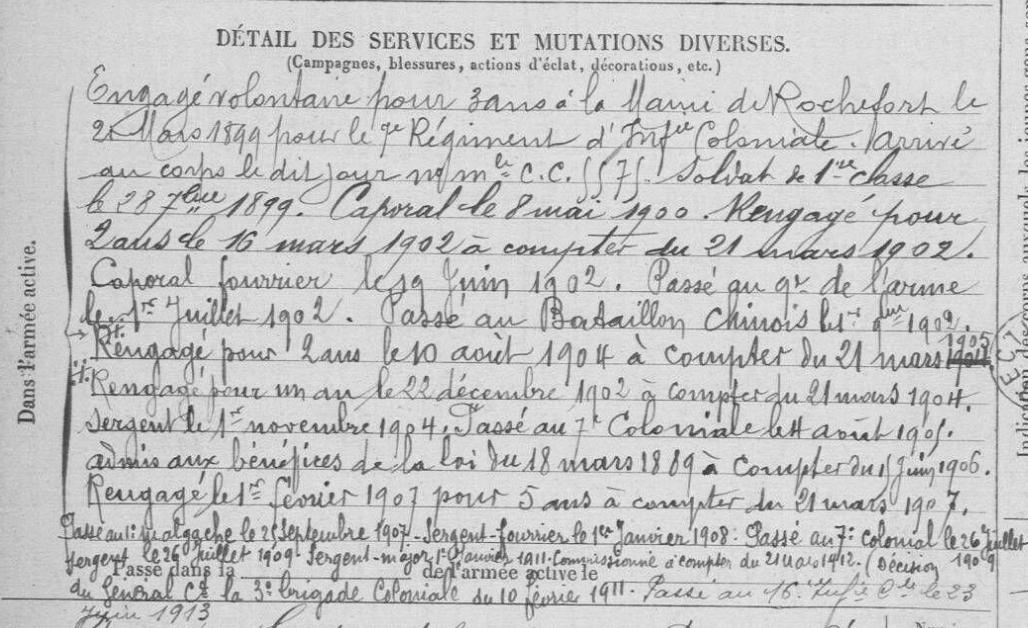 DÉTAIL DES SERVICES ET MUTATIONS DIVERSES.
(Campagnes, blessures, actions d'éclat, décorations, etc.)
Engagé volontaire pour 3 ans à la Mairie de Rochefort le
21 Mars 1899 pour le Régiment d'Inf^ie Coloniale. Arrivé
au corps le dit jour n° m^le C.C. 557. Soldat de 1^re classe
le 28 7^bre 1899. Caporal le 8 mai 1900. Rengagé pour
2 ans le 16 mars 1902 à compter du 21 mars 1902.
Caporal fourrier le 19 Juin 1902. Passé au 9^e de l'arme
le 1^er Juillet 1902. Passé au Bataillon Chinois le 1^er 9^bre 1902.
1905
Rengagé pour 2 ans le 10 août 1904 à compter du 21 mars
Rengagé pour un an le 22 décembre 1902 à compter du 21 mars 1904.
Sergent le 1^er novembre 1904. Passé au 7^e Coloniale le 4 août 1905.
admis aux bénéfices de la loi du 18 mars 1889 à compter du Juin 1906.
Rengagé le 1^er février 1907 pour 5 ans à compter du 21 mars 1907.
Passé au 1: malgache le 25 Septembre 1907 - Sergent-fourrier le 1^er Janvier 1908 - Passé au 7^e colonial le 26 Juillet
1909
Sergent le 26 Juillet 1909 - Sergent-major 1^er Janvier 1911 - Commissionné à compter du 21 Mars 1912. (Décision
Passé dans la de l'armée active le
du Général C^t la 3^e brigade Coloniale du 10 février 1911. Passé au 16^e Inf^ie C^le le 23
Juin 1913
Dans l'armée active.